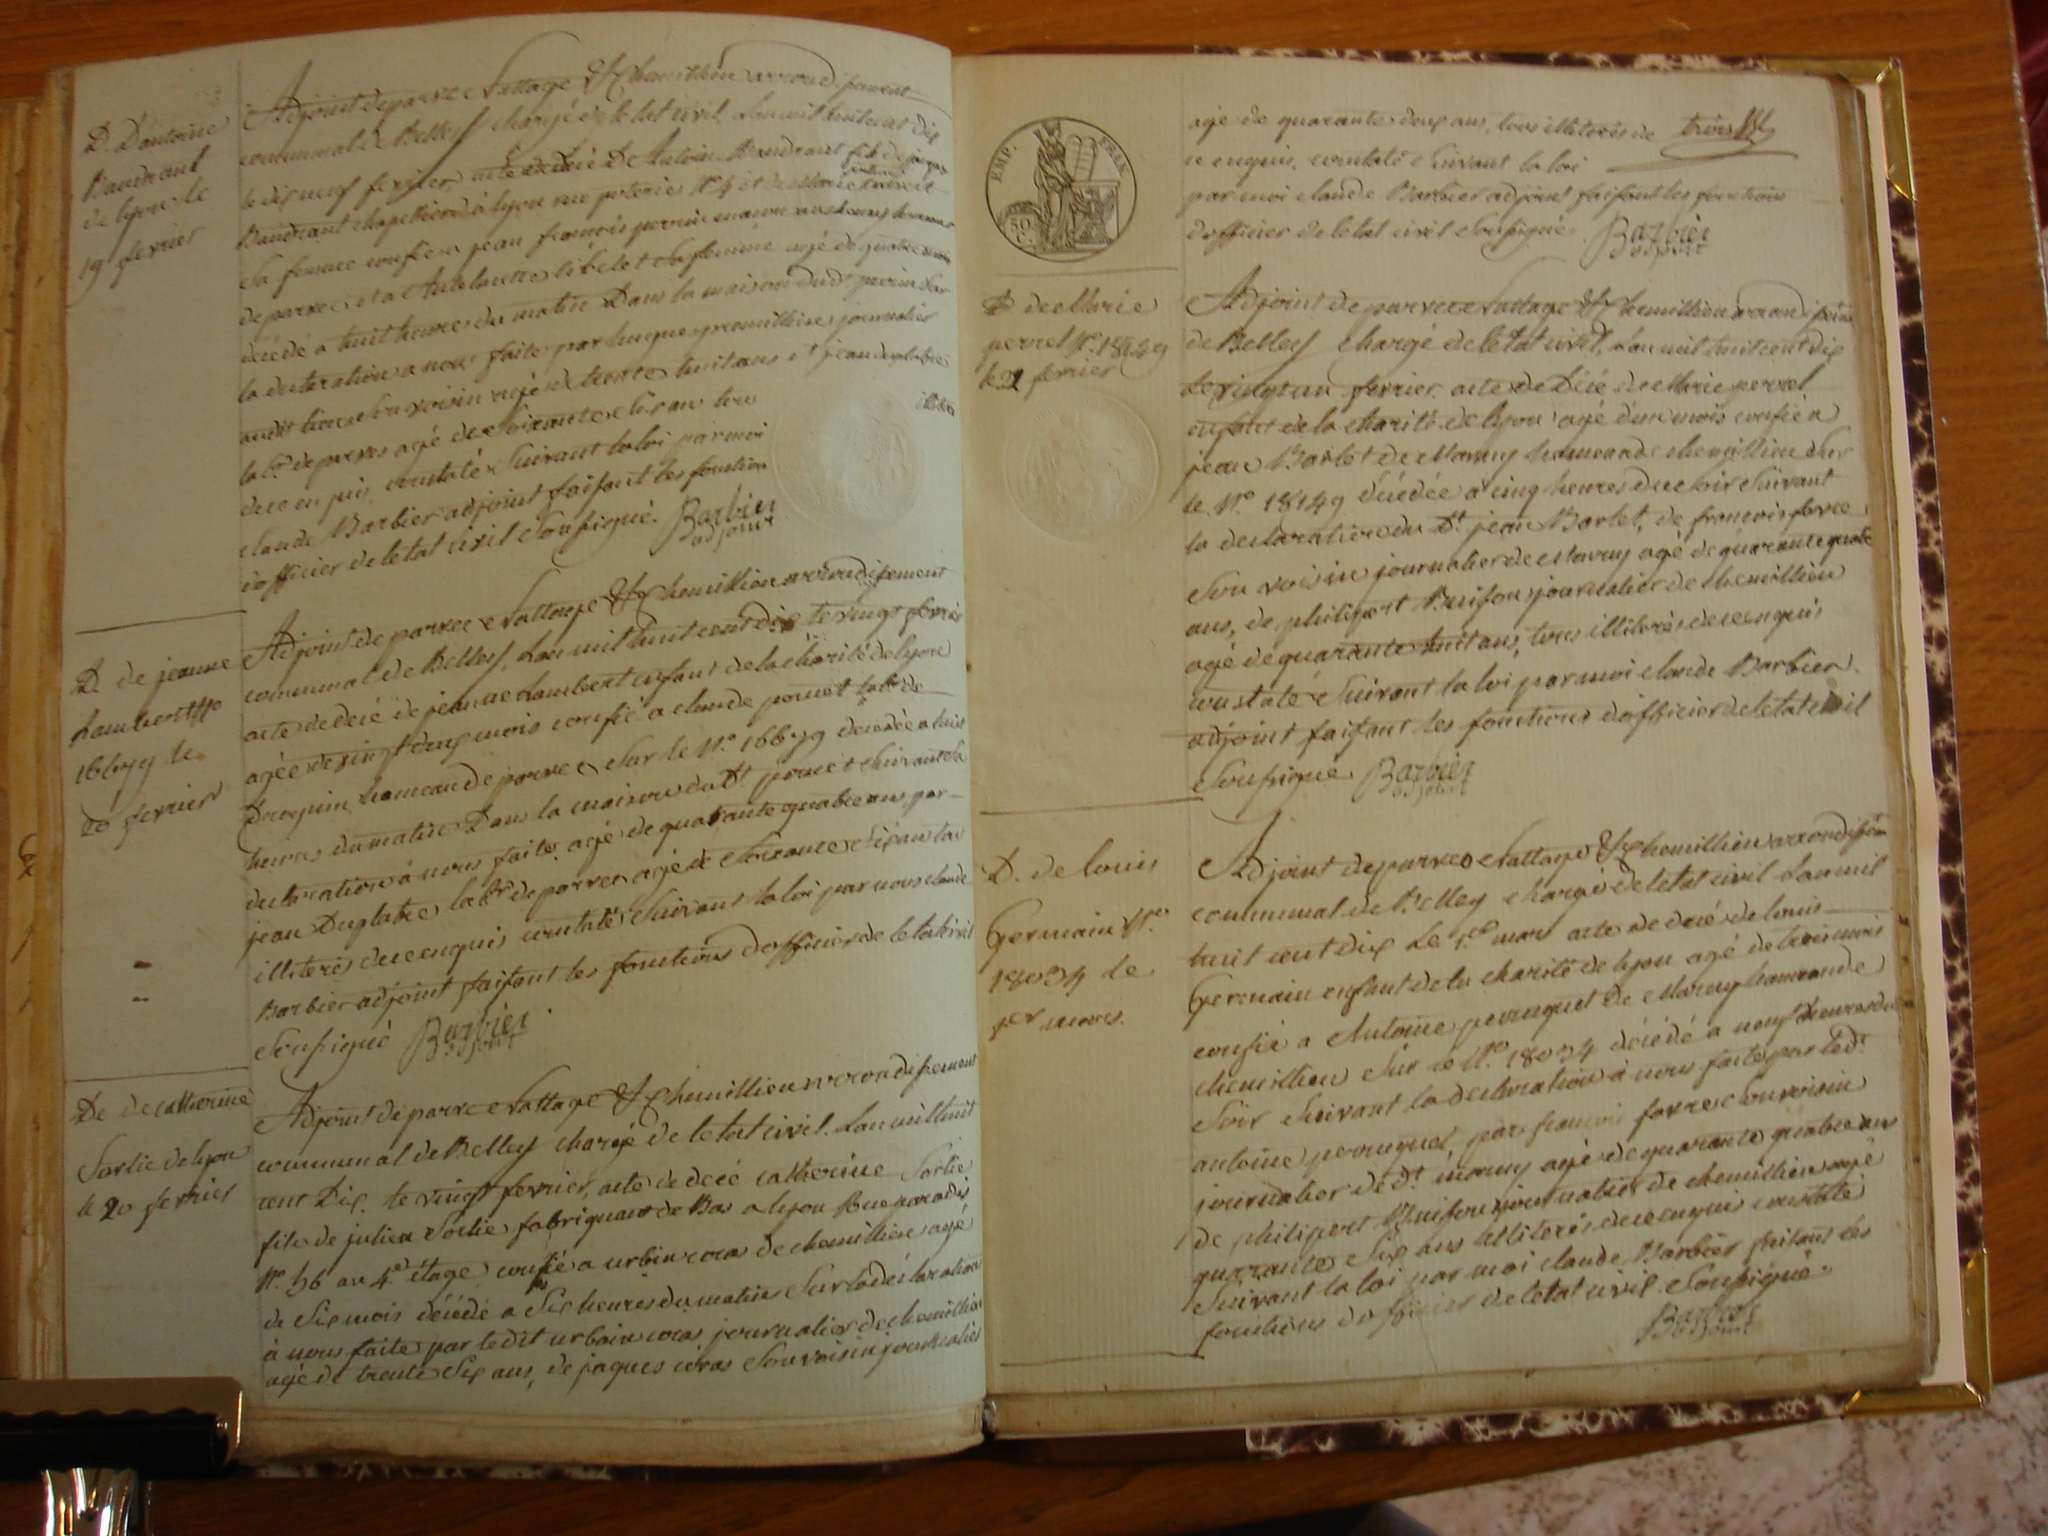 D. D'antoine
Baudrant
de lyon le
19 fevrier
Adjoint de parves Nattage & Chemillieu arrondisement
communal de Belley chargé de letat civil, Lan mil huit cent dix
le dix neuf fevrier, acte de décé De Antoine Baudrant fils de
Baudrant chapellier à lyon rue N° 4 et de
sa femme confié a jean françois perrin
de parves et a sa femme agé de quatre
décédé a huit heures du matin Dans la maison dudt perrin
la declaration a nous faite par journalier
audit lieu son voisin agé de trente huit ans et jean duplatre
illiterés
labr. de parves agé de soixante six ans tous
de ce enquis, constaté suivant la loi par moi
claude Barbier adjoint faisant les fonctions
d'officier de letat civil soussigné. Barbier
adjoint
D. de jeanne
Lambert N°
16679 le
20 fevrier
Adjoint de parves Nattage & Chemillieu arrondisement
communal de Belley, Lan mil huit cent dix le vingt fevrier
acte de décé de jeanne Lambert enfant de la charité de lyon
agée de vingt deux mois confié a claude labr de
hameau de parves Sur le N° 16679 decedée a huit
heures du matin Dans la maison du Dt suivant la
declaration à nous faite, agé de quarante quatre ans, par
jean Duplatre labr de parves agé de soixante six ans tous
illiterés de ce enquis constaté suivant la loi par nous claude
Barbier adjoint faisant les fonctions d'officier de letat civil
Soussigné Barbier
adjoint
De de catherine
Sorlie de lyon
le 20 fevrier
Adjoint de parves Nattage & Chemillieu arrondisement
communal de Belley chargé de letat civil. Lan mil huit
cent Dix. le vingt fevrier, acte de décé catherine Sorlie
file de julien Sorlie fabriquant de Bas a lyon Rue
N° 56 au 4e étage, confié a urbin de chemillieu agé
de Six mois décédé a Six heures du matin Sur la déclaration
à nous faite par ledit urbain journalier de chemillieu
agé de trente Six ans, de jaques Son voisin journalier
EMP. FRAN.
50
C.
agé de quarante deux ans, tous illiterés de trois
ce enquis. constaté Suivant la loi
par moi claude Barbier adjoint faisant les fonctions
d'officier de letat civil Soussigné. Barbier
adjoint
D. de Marie
perret N° 18149
le 21 fevrier
Adjoint de parves Nattage & Chemillieu
de Belley chargé de letat civil, Lan mil huit cent Dix
Le vingt un fevrier acte de Décé de Marie perret
enfant de la charité de lyon agé d'un mois confié a
jean Barlet de hameau de chemillieu Sur
le N° 18149 décédée a cinq heures du soir Suivant
la declaration du Dt jean Barlet, de françois favre
Son voisin journalier de agé de quarante quatre
ans, de philipert journalier de chemillieu
agé de quarante huit ans, tous illiterés de ce enquis
constaté Suivant la loi par moi claude Barbier
adjoint faisant les fonctions d'officier de letat civil
Soussigné Barbier
adjoint
D. de louis
Germain N°
18034 le
1er mars.
Adjoint de parves Nattage & Chemillieu
communal de Belley chargé de letat civil Lan mil
huit cent dix Le 1er mars acte de décé de louis
Germain enfant de la charité de lyon agé de trois mois
confié a Antoine hameau de
chemillieu Sur le N° 18034 décédé a neuf heures du
Soir Suivant la déclaration à nous faite par ledt
antoine par françois favre Son voisin
journalier de dt agé de quarante quatre ans
de philipert journalier de chemillieu agé
quarante Six ans illiterés de ce enquis constaté
Suivant la loi par moi claude Barbier faisant les
fonctions d'officier de letat civil Soussigné.
Barbier
adjoint